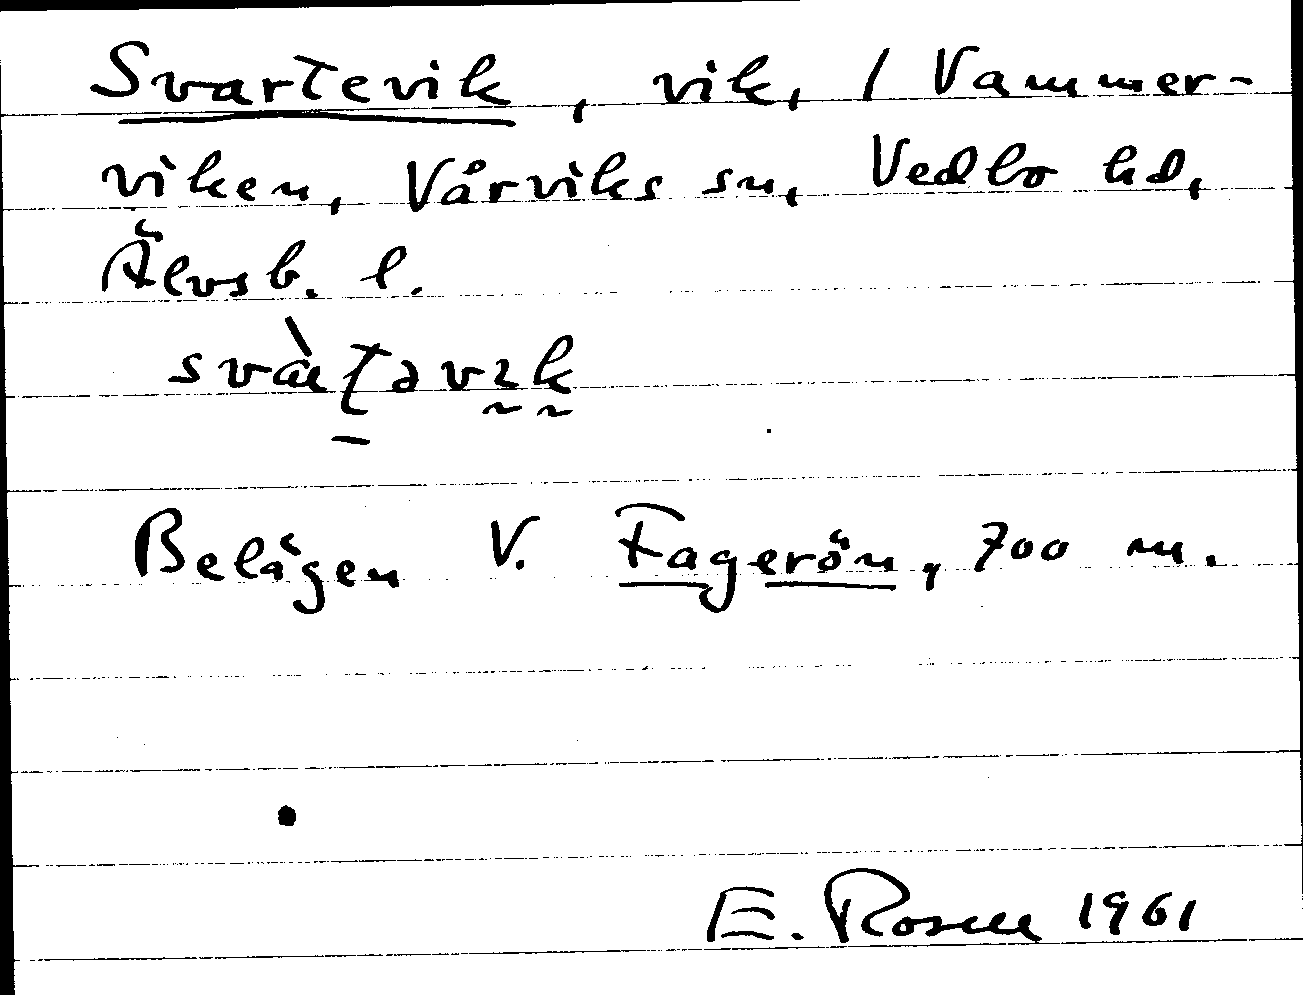 Svartevik, vik, / Vammer-
viken, Vårviks sn, Vedbo hd,
Älvsb. l.
Belägen V. Fagerön, 700 m.
E. Rosell 1961